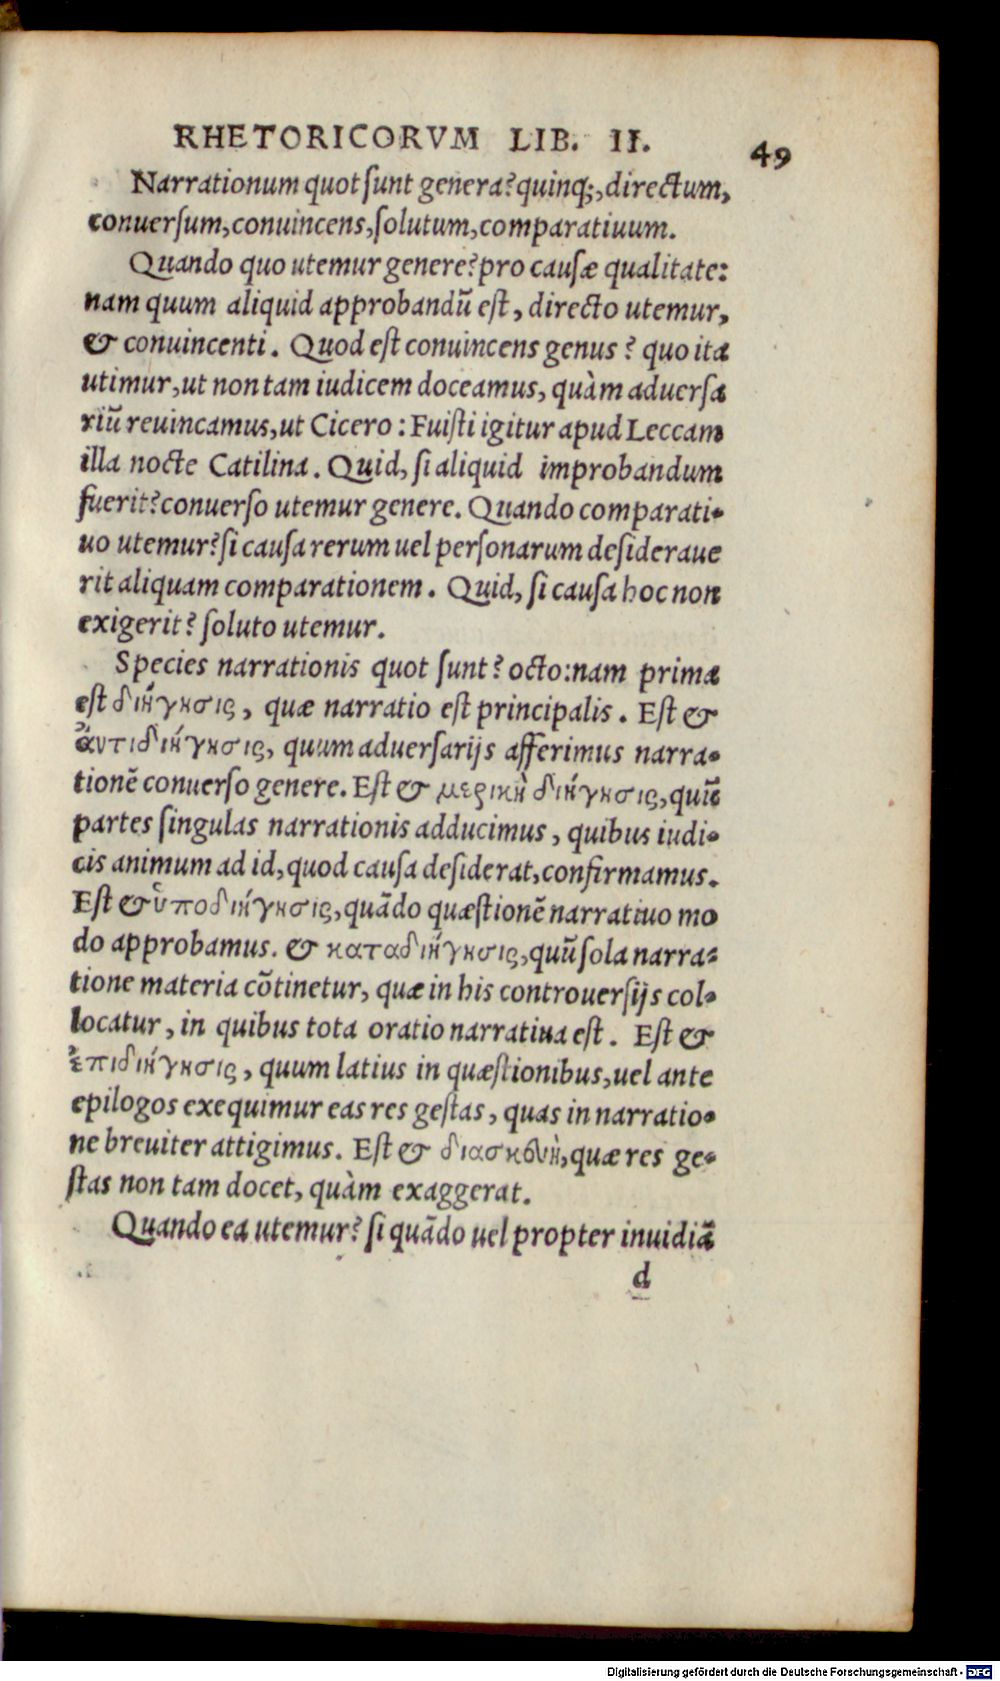 RHETORICORVM LIB. II. 49
Narrationum quot ſunt genera? quinq;, directum,
conuerſum, conuincens, ſolutum, comparatiuum.
Quando quo utemur genere? pro cauſæ qualitate:
nam quum aliquid approbandũ eſt, directo utemur,
& conuincenti. Quod eſt conuincens genus? quo ita
utimur, ut non tam iudicem doceamus, quàm aduerſa
riũ reuincamus, ut Cicero: Fuiſti igitur apud Leccam
illa nocte Catilina. Quid, ſi aliquid improbandum
fuerit? conuerſo utemur genere. Quando comparati-
uo utemur? ſi cauſa rerum uel perſonarum deſideraue
rit aliquam comparationem. Quid, ſi cauſa hoc non
exigerit? ſoluto utemur.
Species narrationis quot ſunt? octo: nam prima
eſt διήγησις, quæ narratio eſt principalis. Eſt &
ἀντιδιήγησις, quum aduerſarijs afferimus narra-
tionẽ conuerſo genere. Eſt & μερικὴ διήγησις, quũ
partes ſingulas narrationis adducimus, quibus iudi-
cis animum ad id, quod cauſa deſiderat, confirmamus.
Eſt & ὑποδιήγησις, quãdo quæſtionẽ narratiuo mo
do approbamus. & καταδιήγησις, quũ ſola narra-
tione materia cõtinetur, quæ in his controuerſijs col-
locatur, in quibus tota oratio narratiua eſt. Eſt &
ἐπιδιήγησις, quum latius in quæſtionibus, uel ante
epilogos exequimur eas res geſtas, quas in narratio-
ne breuiter attigimus. Eſt & διασκευὴ, quæ res ge-
ſtas non tam docet, quàm exaggerat.
Quando ea utemur? ſi quãdo uel propter inuidiã
d
Digitalisierung gefördert durch die Deutsche Forschungsgemeinschaft - DFG